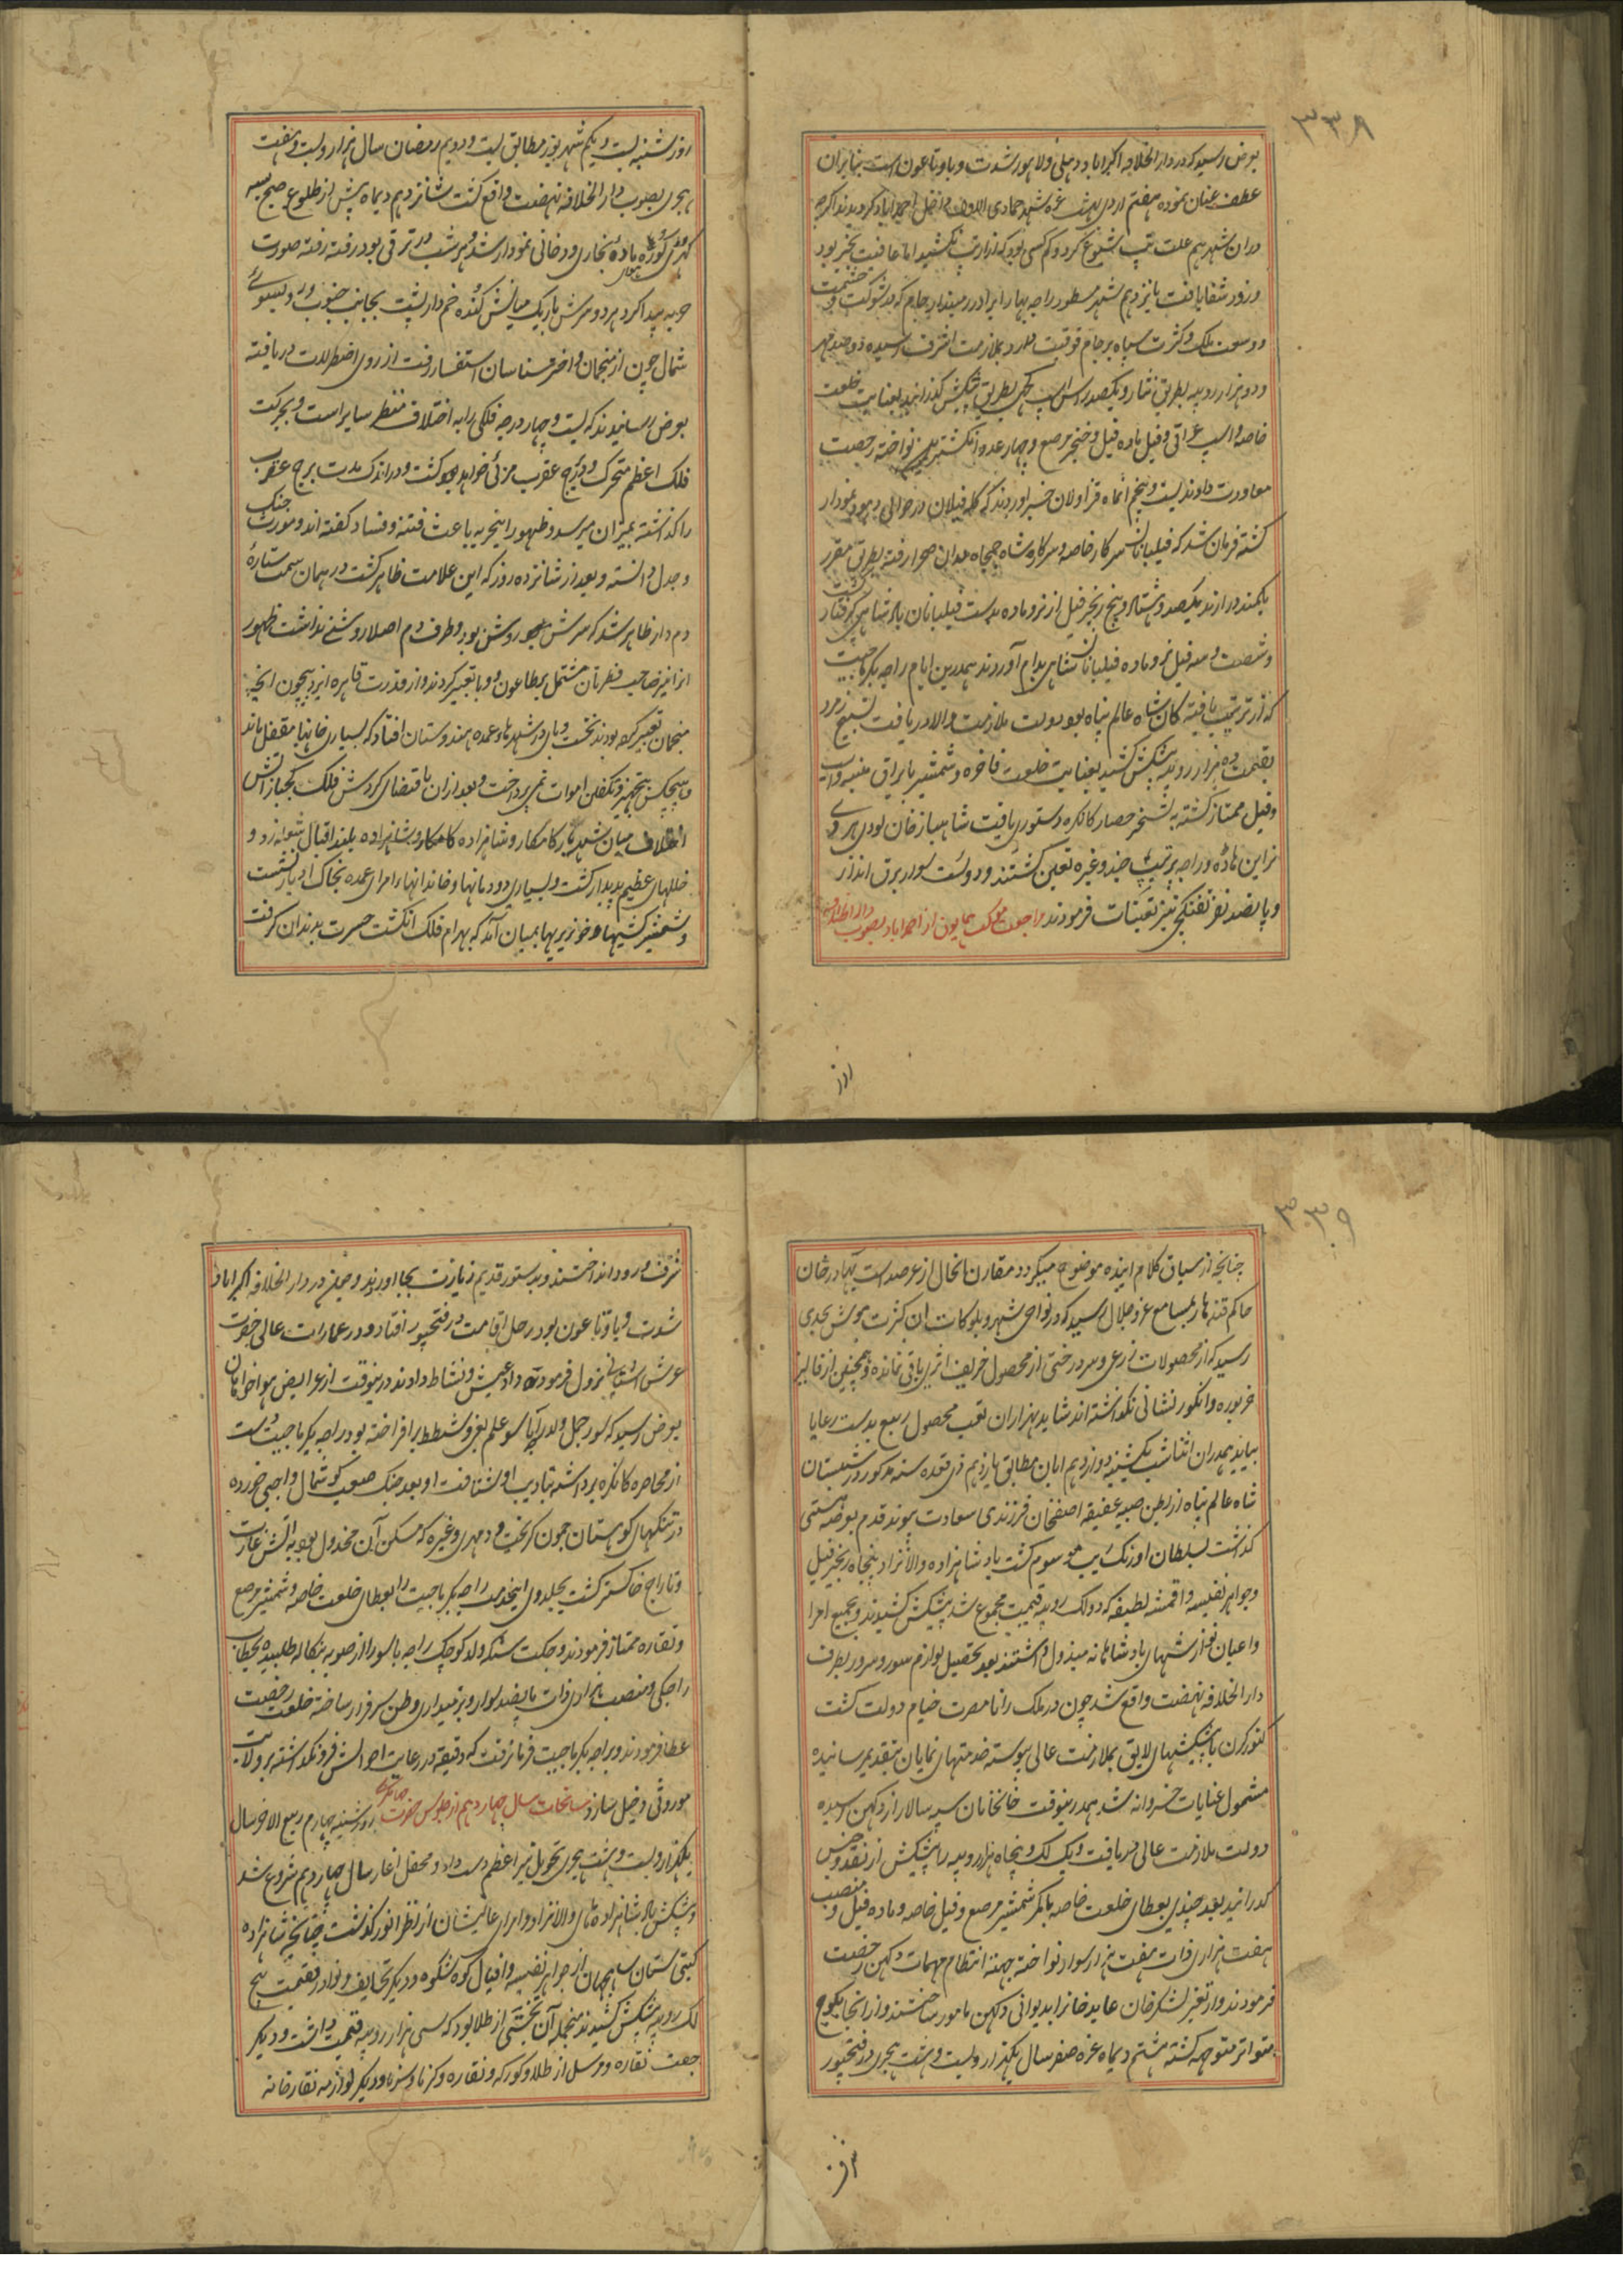 ۳۳۸
بعرض رسید که در دار الخلافه اکبراباد و دهلی و لاهور شدت وبا و تاعون است بنابران
عطف عنان نموده هفتم اردی بهشت غره شهر جمادی الاول داخل احمداباد کردیدند اکرچه
دران شهر هم علت تپ شیوع کرد و کم کسی بود که ازار تپ نکشید اما عاقبت بخیر بود
و زود شفا یافت پانزدهم شهر مسطور راجه بهارا برادر زمیندار جام که بشوکت و حشمت
و وسعت ملک و کثرت سپاه بر جام فوقیت دارد بملازمت اشرف رسیده دوصد مهر
و دو هزار روپیه بطریق نثار و یکصد راس اسپ کچی بطریق پیشکش کذرانید بعنایت خلعت
خاصه و اسپ عراقی و فیل و ماده فیل و خنجر مرصع و چهار عدد انکشتر نواخته رخصت
معاودت دادند بیست و پنجم انماه قراولان خبر اوردند که کله فیلان در حوالی دهود نمودار
کشته فرمان شد که فیلبانان سرکار خاصه و سرکار شاه جمجاه بدان صحرا رفته بطریق مقرر
بکمند در ارند یکصد و هشتاد و پنج زنجیر فیل از نر و ماده بدست فیلبانان پادشاهی کرفتار کشت
و شصت و سه فیل نر و ماده فیلبانان شاهی بدام آوردند همدرین ایام راجه بکرماجیت
که از تربیت یافته کان شاه عالم پناه بود دولت ملازمت والا دریافت تسبیح زمرد
بقیمت ده هزار روپیه پیشکش کشید بعنایت خلعت فاخره و شمشیر با یراق و اسپ
و فیل ممتاز کشته به تسخیر حصار کانکره دستوری یافت شاهباز خان لودی هردی
نراین هاده و راجه پرتهی چند و غیره تعین کشتند و دویست سوار برق انداز
و پانصد نفر تفنکچی نیز تعینات فرمودند مراجعت موکب همایون از احمداباد بصوب دار الخلافه
روز
روز شنبه بیست و یکم شهریور مطابق بیست و دویم رمضان سال هزار و بیست و هفت
هجری بصوب دار الخلافه نهضت واقع کشت شانزدهم دیماه پیش از طلوع صبح بسه
کهری در کره هوا ماده بخاری و دخانی نمودار شد و هر شب در ترقی بود رفته رفته صورت
حربه پیدا کرد هر دو سرش باریک میانش کنده خم دار پشت بجانب جنوب و روی بسوی
شمال چون از منجمان و اختر شناسان استفسار رفت از روی اضطرلاب دریافته
بعرض رسانیدند که بیست و چهار درجه فلکی را به اختلاف منظر سایر است و بحرکت
فلک اعظم متحرک و در برج عقرب مرئی خواهد کشت و در اندک مدت برج عقرب
را کذاشته بمیزان میرسد و ظهور اینحربه باعث فتنه و فساد کفته اند و مورث جنک
و جدل دانسته و بعد از شانزده روز که این علامت ظاهر کشت در همان سمت ستاره
دم دار ظاهر شد که سرش روشن بود و طرف دم اصلا روشنی نداشت ظهور
انرا نیز صاحب فطرتان مشتمل بطاعون و وبا تعبیر کردند و از قدرت قاهره ایزد بیچون انچه
منجمان تعبیر کرده بودند نخست وبای در شهرهای عمده هندوستان افتاد که بسیاری خانها مقفل ماند
و هیچکس بتجهیز و تکفین اموات نمی پرداخت و بعد ازان باقتضای کردش فلک کجباز اتش
اختلاف میان شهریار کامکار و شاهزاده بلند اقبال شعله زد و
خللهای عظیم پدیدار کشت و بسیاری دودمانها و خاندانها و امرای عمده بخاک ادبار نشست
و شمشیر کشیها و خونریزیها بمیان آمد که بهرام فلک انکشت حسرت بدندان کرفت
۳۳۹
چنانچه از سیاق کلام اینده موضوح میکردد مقارن انحال از عرصداشت بهادر خان
حاکم قندهار بمسامع عز و جلال رسید که در نواحی شهر و بلوکات ان کثرت موش بحدی
رسید که از محصولات زرعی و سردرختی از محصول خریف اثری باقی نمانده و همچنین از فالیز
خربوزه و انکور نشانی نکذاشته اند شاید بهزاران تعب محصول ربیع بدست رعایا
بیاید همدران اثنا شب یکشنبه دوازدهم ابان مطابق پانزدهم ذی قعده سنه مذکور در شبستان
شاه عالم پناه از بطن صبیه عفیفه اصفخان فرزندی سعادت پیوند قدم بعرصه هستی
کذاشت بسلطان اورنک زیب موسوم کشت پادشاهزاده والانژاد پنجاه زنجیر فیل
و جواهر نفیسه و اقمشه لطیفه که دو لک روپیه قیمت مجموع شد پیشکش کشیدند و بجمیع امرا
و اعیان نوازشهای پادشاهانه مبذول داشتند بعد تحصیل لوازم سور و سرور بطرف
دار الخلافه نهضت واقع شد چون در ملک رانا مضرب خیام دولت کشت
کنور کرن با پیشکشهای لایق بملازمت عالی پیوسته خدمتهای نمایان بتقدیم رسانیده
مشمول عنایات خسروانه شد همدرینوقت خانخانان سپه سالار از دکهن رسیده
دولت ملازمت عالی دریافت و یک لک و پنجاه هزار روپیه را پیشکش از نقد و جنس
کذرانید بعد چندی بعطای خلعت خاصه با کمر شمشیر مرصع و فیل خاصه و ماده فیل و منصب
هفت هزاری ذات هفت هزار سوار نواخته جهته انتظام مهمات دکهن رخصت
فرمودند و از تغیر لشکر خان عابد خانرا بدیوانی دکهن مامور ساختند و از انجا بکوچ
متواتر متوجه کشته هشتم دیماه غره صفر سال یکهزار و بیست و هشت هجری در فتحپور
شرف ورود انداختند و بدستور قدیم زیارت بجا اوردند و چون در دار الخلافه اکبراباد
شدت وبا و تاعون بود رحل اقامت در فتحپور افتاد و در عمارات عالی حضرت
عرش اشیانی نزول فرموده داد عیش و نشاط دادند درینوقت از عرایض هواخواهان
بعرض رسید که سورجمل ولد راجه باسو علم بغی و شطط بر افراخته بود راجه بکرماجیت دست
از محاصره کانکره برداشته بتادیب او شتافت او بعد جنک صعب کوشمال واجبی خورده
در تنکهای کوهستان چون کریخت و مهری و غیره که مسکن آن مخذول بود به اتش غارت
و تاراج خاکستر کشت بجلدوی اینخدمت راجه بکرماجیت را بعطای خلعت خاصه و شمشیر مرصع
و نقاره ممتاز فرمودند و جکت سنکه ولد کوچک راجه باسو را از صوبه بنکاله طلبیده بخطاب
راجکی و منصب هزاری ذات پانصد سوار و زمینداری وطن سرفراز ساخته خلعت رخصت
عطا فرمودند و براجه بکرماجیت فرمان رفت که دقیقه در رعایت احوالش فرو نکذاشته بر ولایت
موروثی دخیل سازد سانحات سال چهاردهم از جلوس حضرت جهانکیری روز شنبه چهارم ربیع الاخر سال
یکهزار و بیست و هشت هجری تحویل نیر اعظم دست داد و محفل اغاز سال چهاردهم شروع شد
و پیشکش پادشاهزاده های والانژاد و امرای عالیشان از نظر انور کذشت چنانچه شاهزاده
کیتی ستان شاهجهان از جواهر نفیسه و افیال کوه شکوه و دیکر تحایف و نوادر بقیمت پنج
لک روپیه پیشکش کشیدند منجمله آن تختی از طلا بود که سی هزار روپیه قیمت داشت و دیکر
جفت نقاره مرسل از طلا و کورکه و نقاره و کرنا و سرنا و دیکر لوازمه نقارخانه